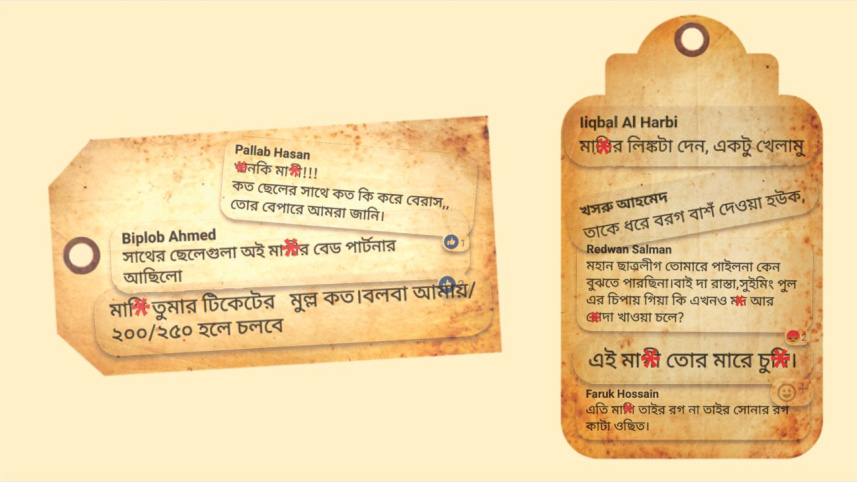 Pallab Hasan
খানকি মাগী!!!
কত ছেলের সাথে কত কি করে বেরাস,,
তোর বেপারে আমরা জানি।
Biplob Ahmed
সাথের ছেলেগুলা অই মাগীর বেড পার্টনার
আছিলো
1
মাগি তুমার টিকেটের মুল্ল কত।বলবা আমায়/
২০০/২৫০ হলে চলবে
Iiqbal Al Harbi
মাগির লিঙ্কটা দেন, একটু খেলামু
খসরু আহমেদ
তাকে ধরে বরগ বাশঁ দেওয়া হউক,
Redwan Salman
মহান ছাত্রলীগ তোমারে পাইলনা কেন
বুঝতে পারছিনা।বাই দা রাস্তা,সুইমিং পুল
এর চিপায় গিয়া কি এখনও মদ আর
খাওয়া চলে?
2
এই মাগী তোর মারে চুদি।
Faruk Hossain
এতি মাগি তাইর রগ না তাইর সোনার রগ
কাটা ওছিত।